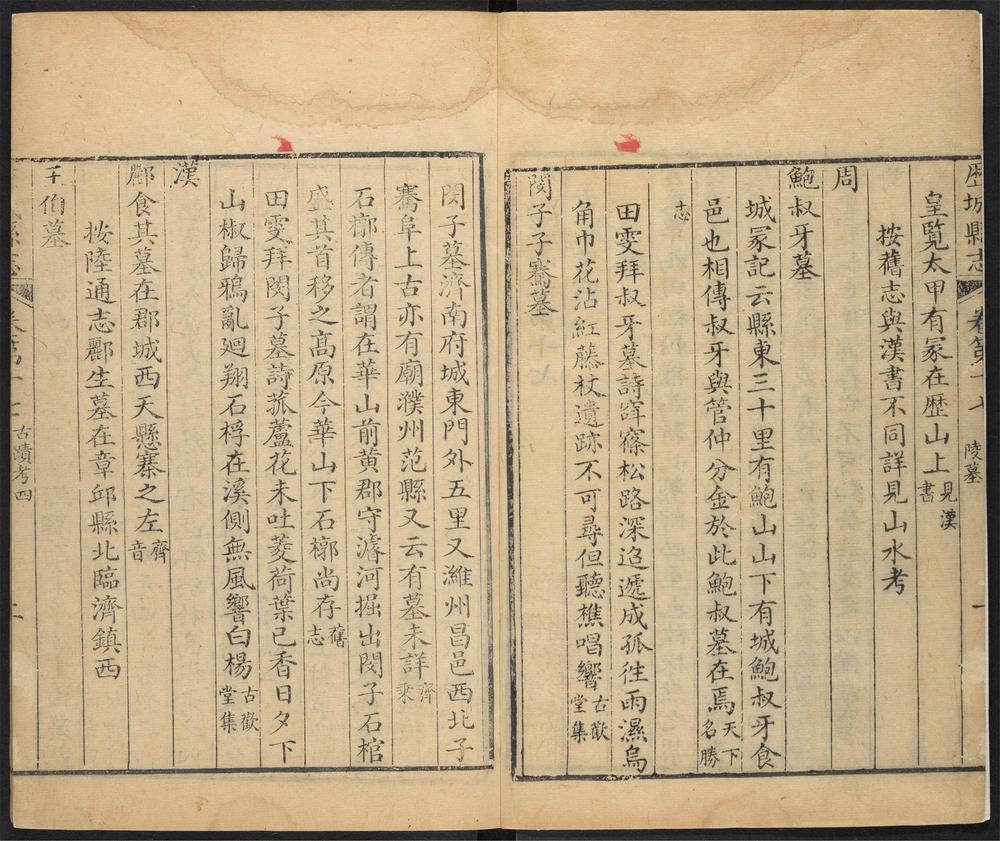 歴城縣志 卷第十七 陵墓 一
皇覽太甲有冢在歴山上見漢書
按舊志與漢書不同詳見山水考
周
鮑叔牙墓
城冢記云縣東三十里有鮑山山下有城鮑叔牙食
邑也相傳叔牙與管仲分金於此鮑叔墓在焉天下名勝
志
田雯拜叔牙墓詩窅窱松路深迢遞成孤徃雨濕烏
角巾花沾紅藤杖遺跡不可尋但聽樵唱響古歡堂集
閔子子騫墓
閔子墓濟南府城東門外五里又濰州昌邑西北子
騫阜上古亦有廟濮州范縣又云有墓未詳齊乘
石槨傳者謂在華山前黄郡守濬河掘出閔子石棺
盛其首移之高原今華山下石槨尚存舊志
田雯拜閔子墓詩菰蘆花未吐菱荷葉已香日夕下
山椒歸鴉亂廻翔石桴在溪側無風響白楊古歡堂集
漢
酈食其墓在郡城西天懸寨之左齊音
按陸通志酈生墓在章邱縣北臨濟鎮西
伯墓
古蹟考四